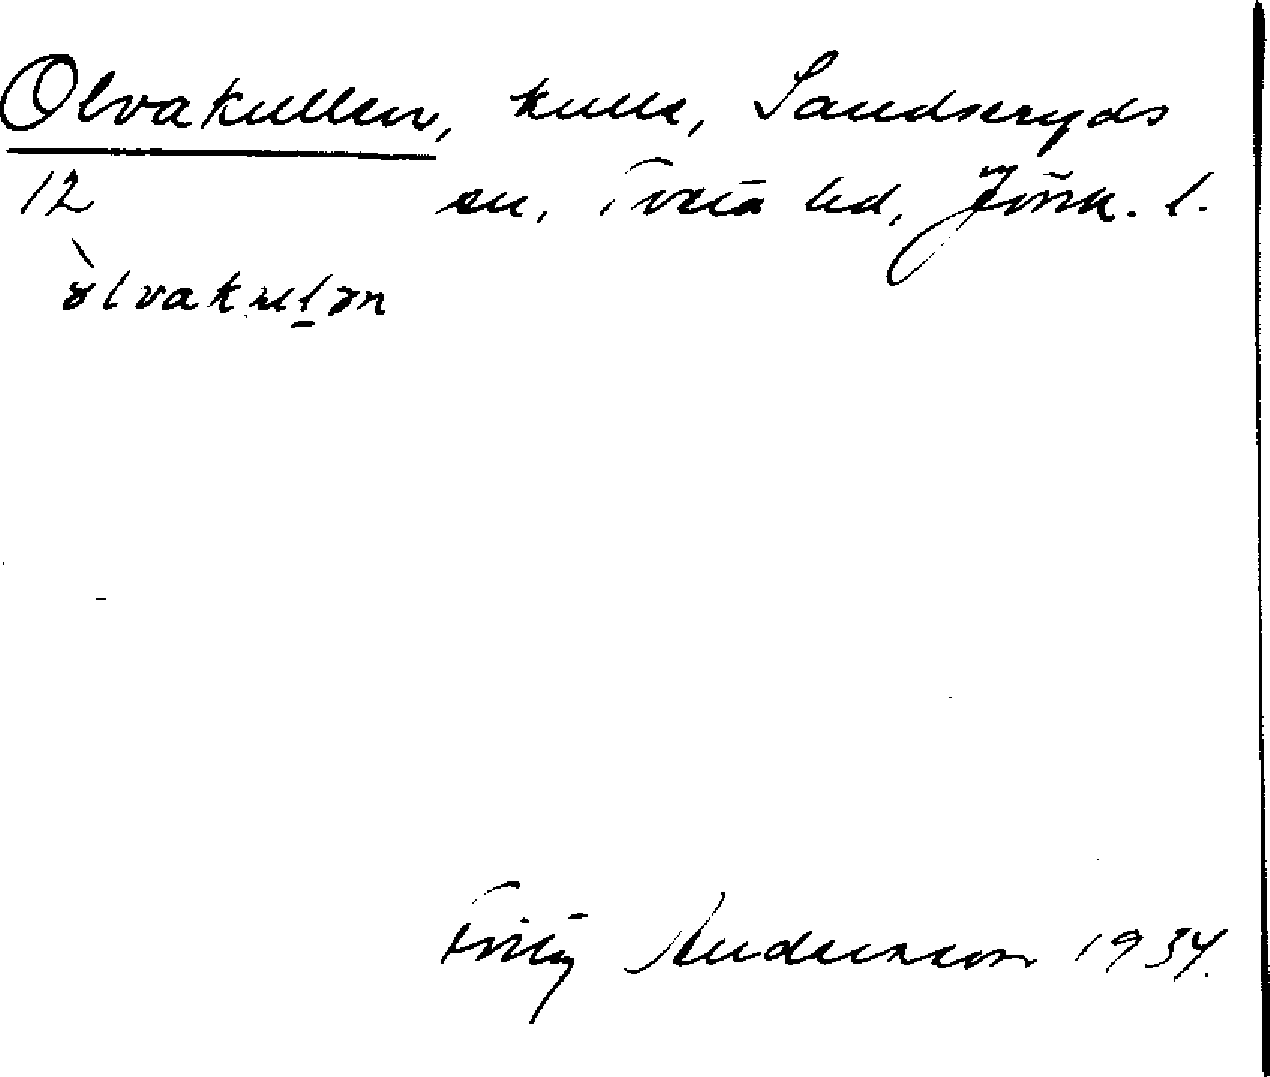 Olvakullen, kulle, Sandseryds
12 sn, Tveta hd, Jönk. l.
òlvakulən
Fritz Andersson 1934.